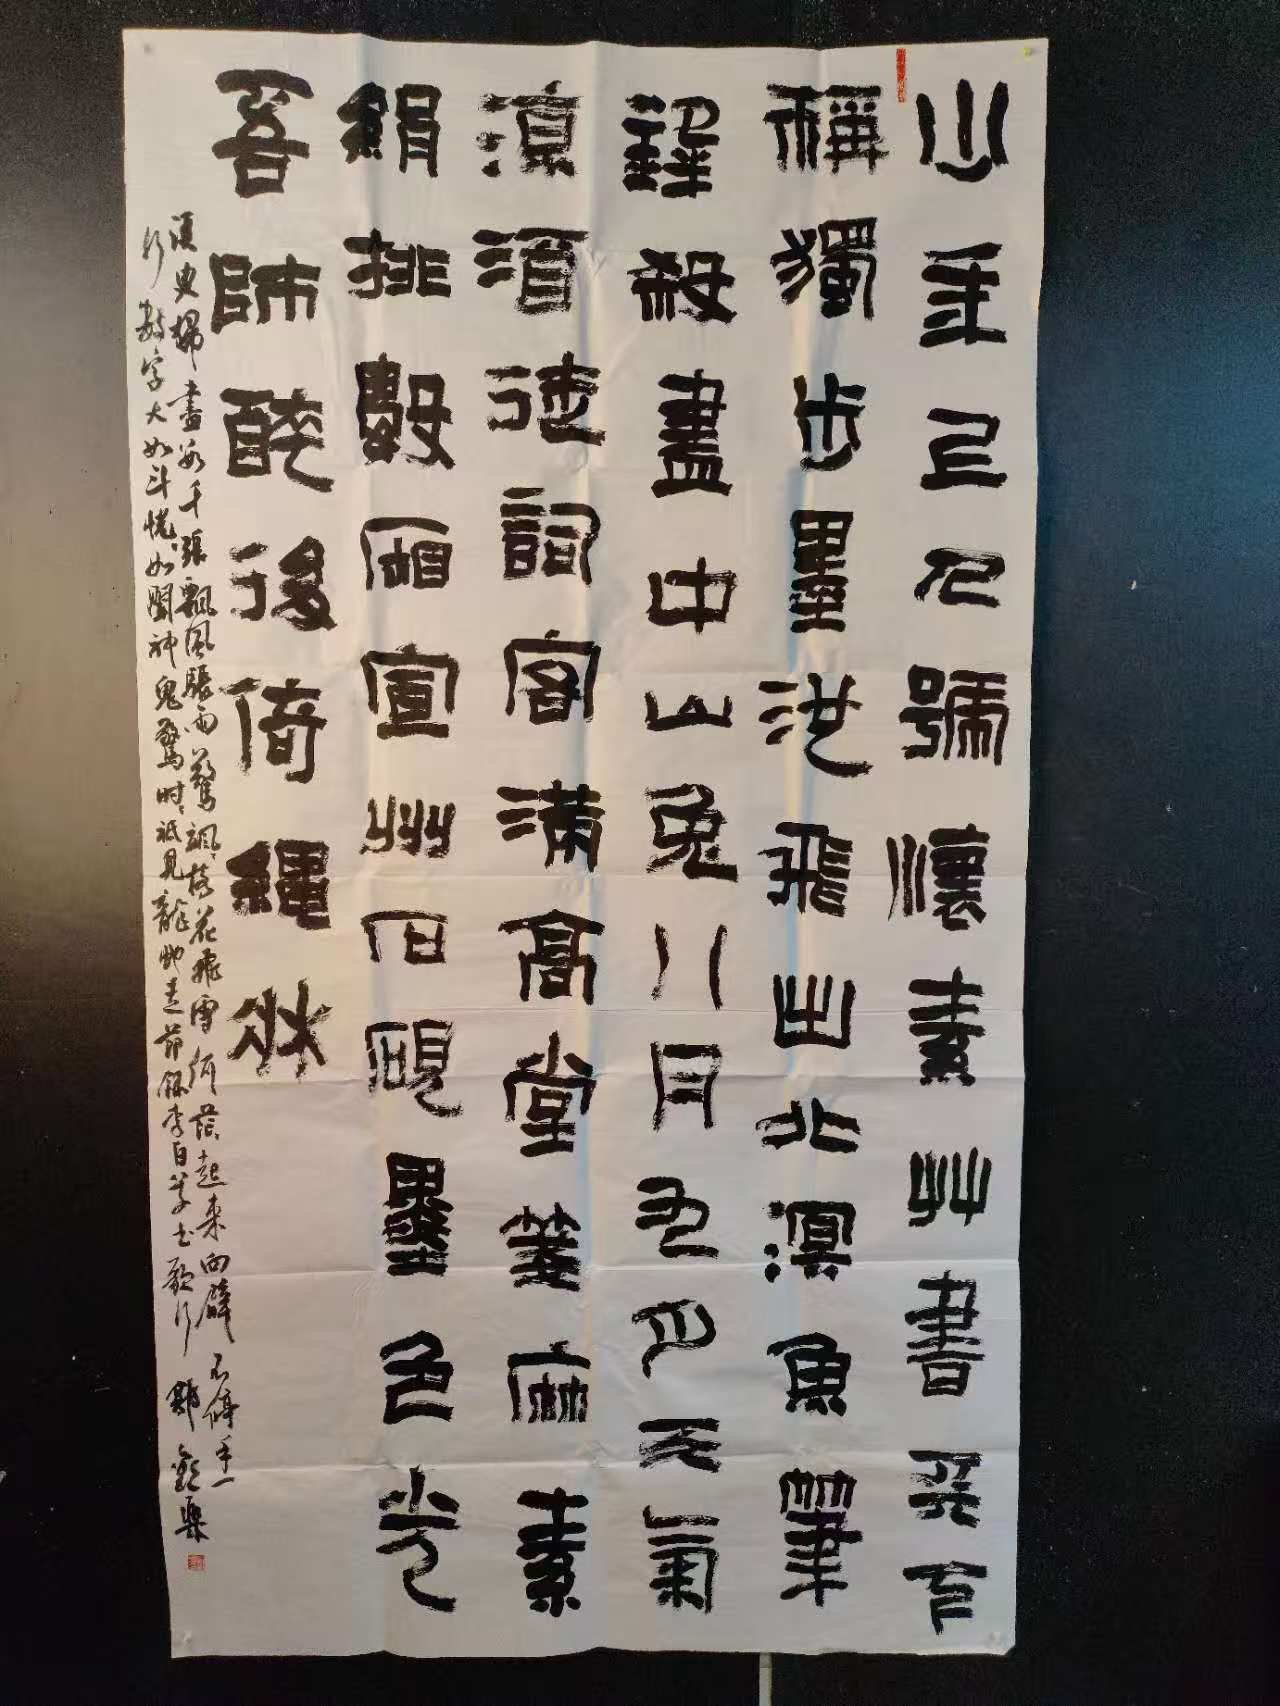 少年上人號懷素艸書天下
稱獨步墨池飛出北溟魚筆
鋒殺盡中山兔八月九月天氣
涼酒徒詞客滿高堂箋麻素
絹排數廂宣州石硯墨色光
吾師醉後倚繩牀
須臾掃盡數千張飄風驟雨驚颯颯落花飛雪何茫茫起來向壁不停手一
行數字大如斗怳怳如聞神鬼驚時時祗見龍蛇走節錄李白草書歌行 鄭